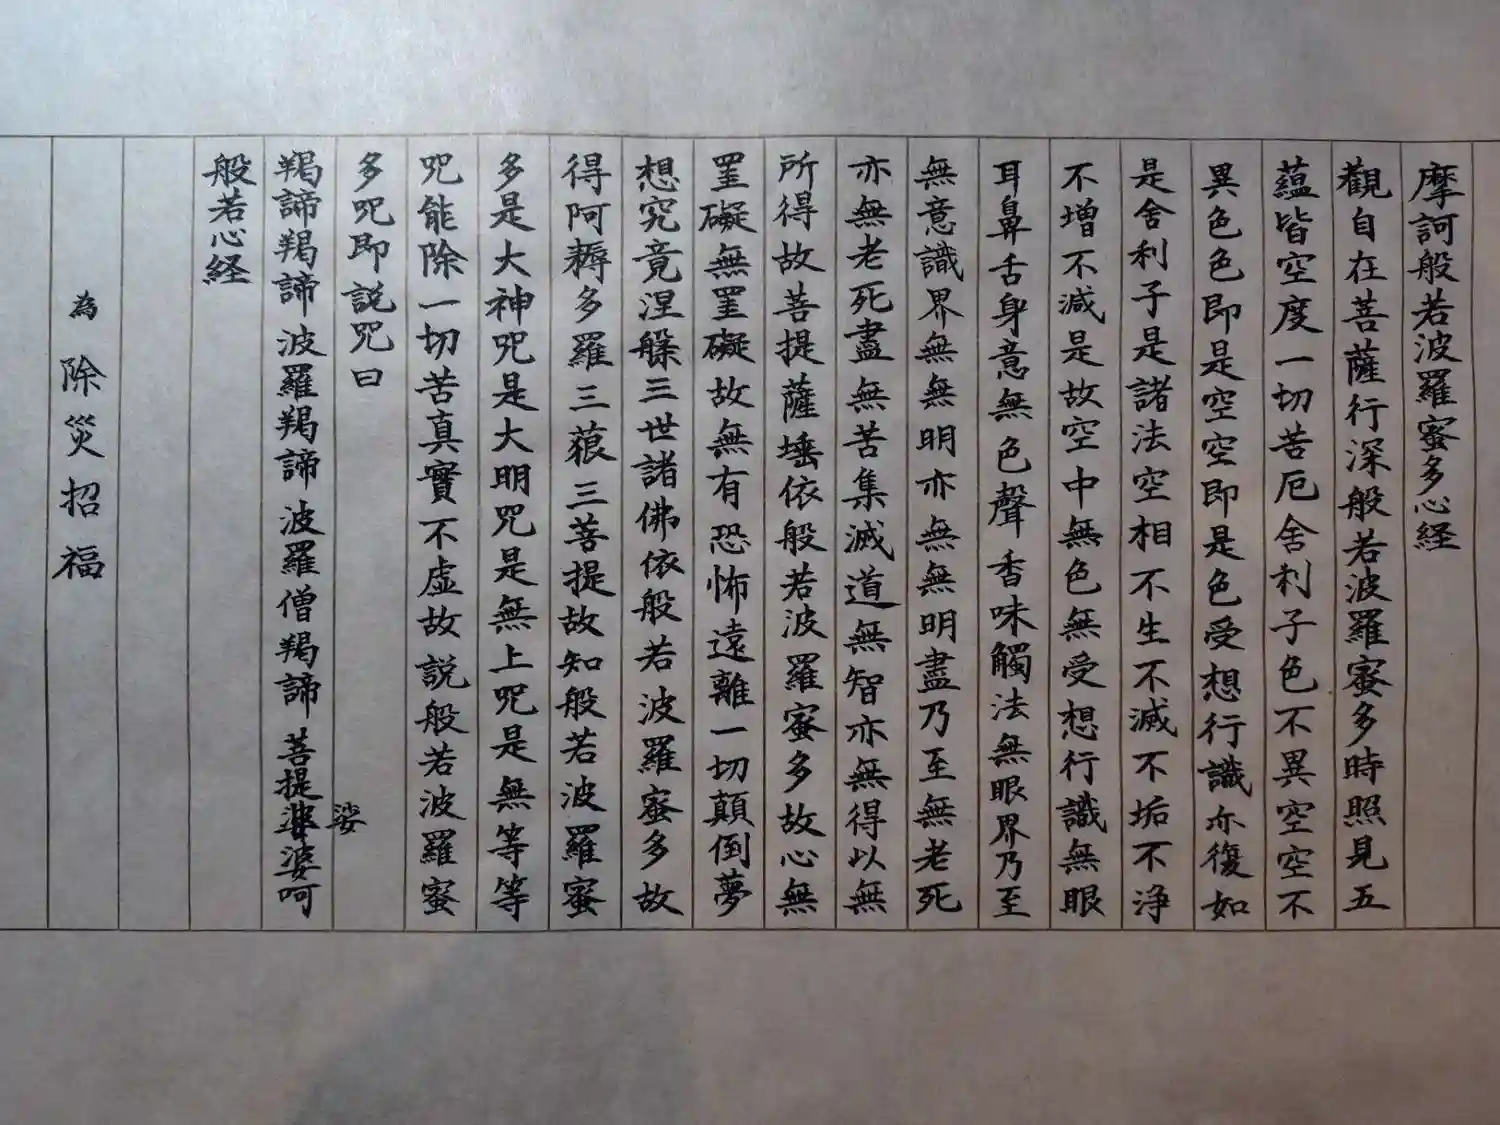 摩訶般若波羅蜜多心経
觀自在菩薩行深般若波羅蜜多時照見五
蘊皆空度一切苦厄舍利子色不異空空不
異色色即是空空即是色受想行識亦復如
是舍利子是諸法空相不生不滅不垢不浄
不增不減是故空中無色無受想行識無眼
耳鼻舌身意無色聲香味觸法無眼界乃至
無意識界無無明亦無無明盡乃至無老死
亦無老死盡無苦集滅道無智亦無得以無
所得故菩提薩埵依般若波羅蜜多故心無
罣礙無罣礙故無有恐怖遠離一切顛倒夢
想究竟涅槃三世諸佛依般若波羅蜜多故
得阿耨多羅三藐三菩提故知般若波羅蜜
多是大神咒是大明咒是無上咒是無等等
咒能除一切苦真實不虛故説般若波羅蜜
多咒即説咒曰
娑
羯諦羯諦波羅羯諦波羅僧羯諦菩提婆呵
般若心経
為除災招福